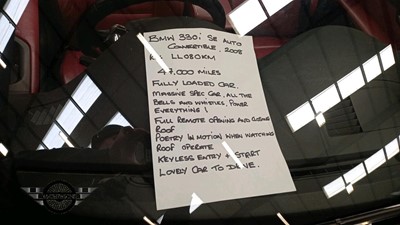 BMW 330i SE AUTO
CONVERTIBLE, 2008
LL080KM
47,000 MILES
FULLY LOADED CAR.
MASSIVE SPEC CAR, ALL THE
BELLS AND WHISTLES, POWER
EVERYTHING!
FULL REMOTE OPENING AND CLOSING
ROOF
POETRY IN MOTION WHEN WATCHING
ROOF OPERATE
KEYLESS ENTRY + START
LOVELY CAR TO DRIVE.